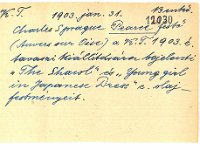 K.T. 1903. jan. 31. B. enkő.
12030
Charles Sprague Pearce festő
(Auvers sur Oise) a K.T. 1903. é.
tavaszi kiállítására bejelenti
"The Shawl" és "Young girl
in Japanese Dress" c. olaj-
festményeit.